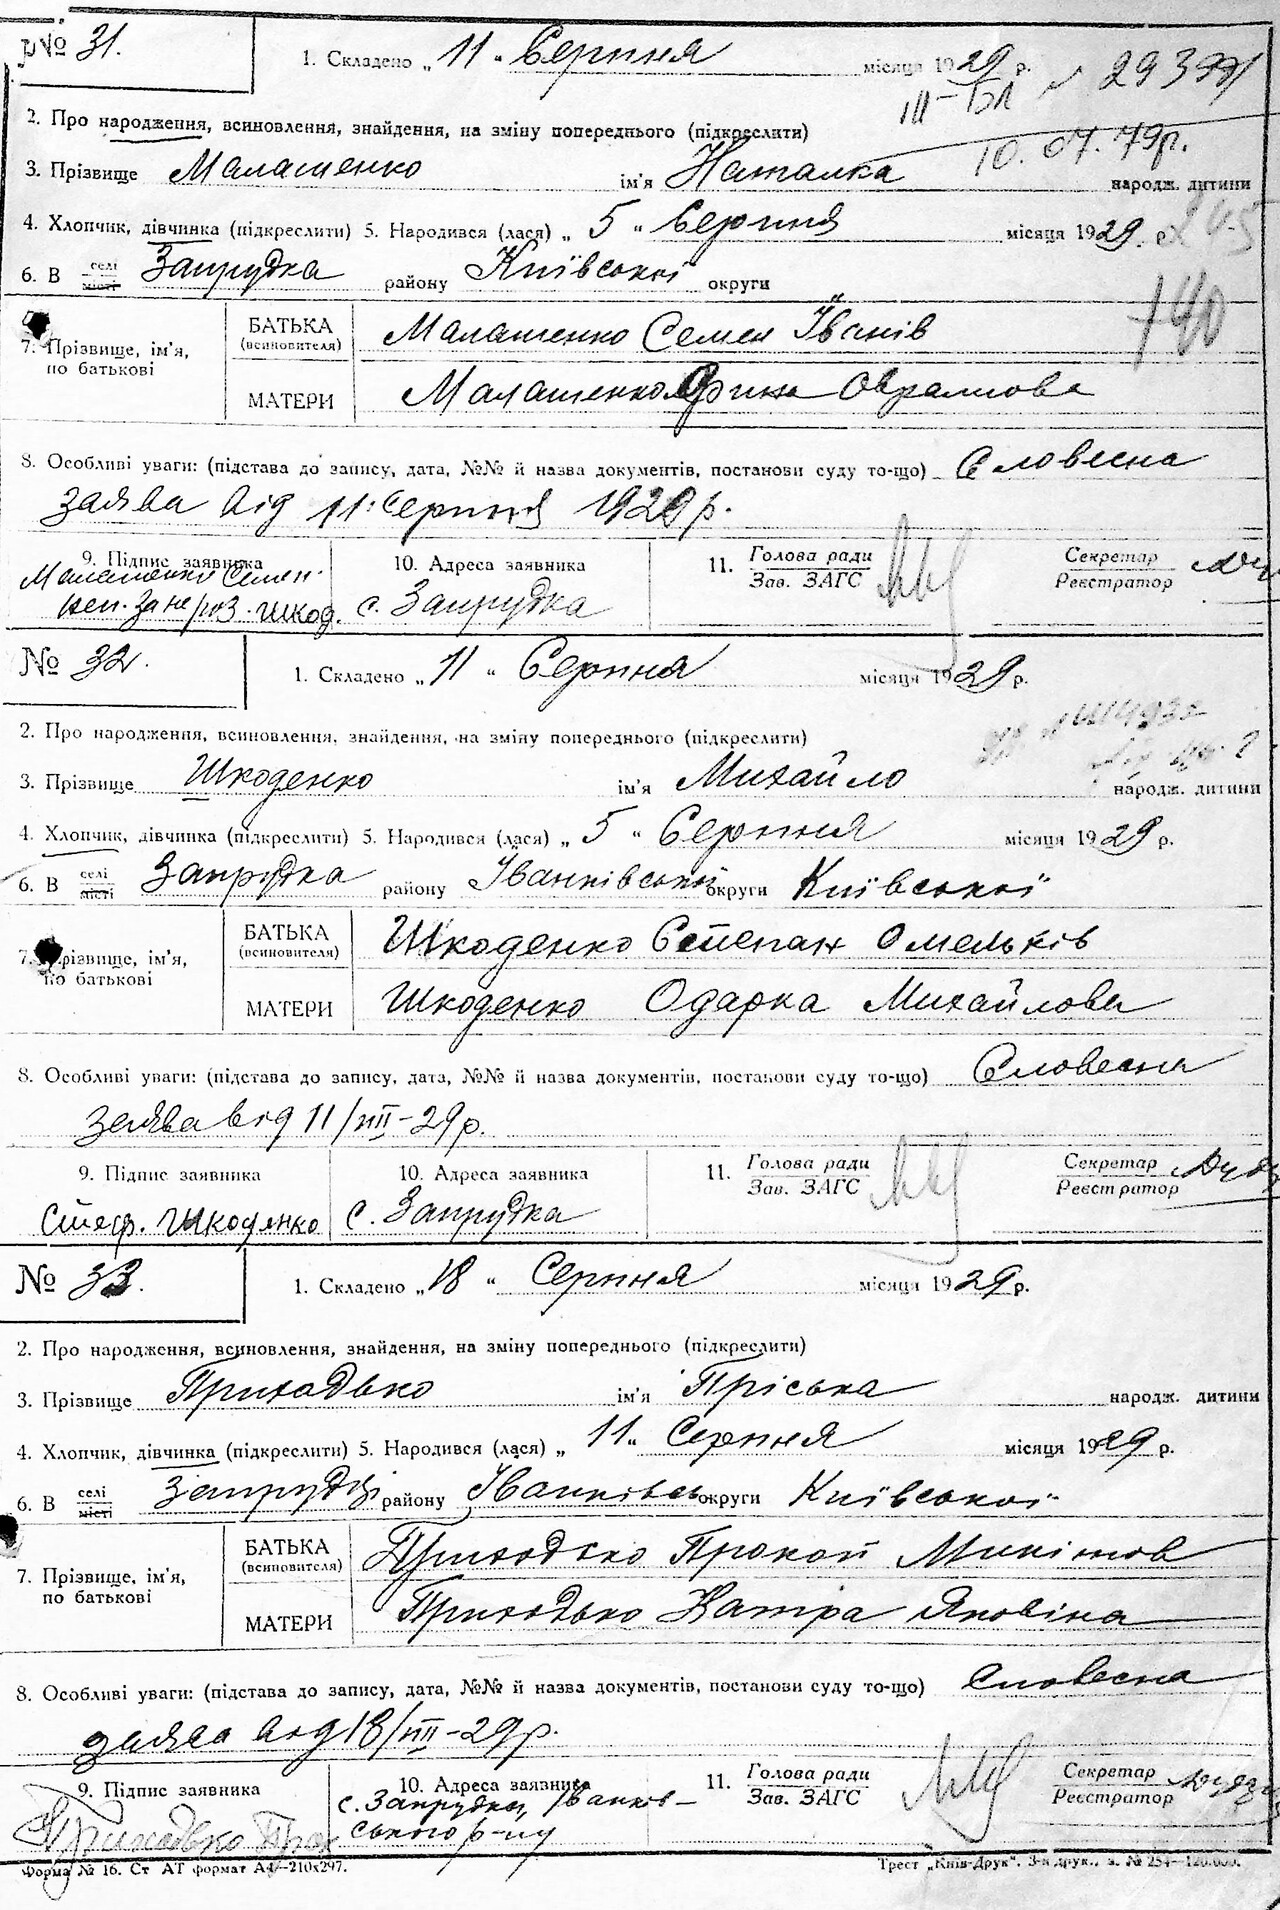 № 31.
1. Складено „ 11 “ Серпня місяця 1929 р.
III–БЛ № 29399
10.07.79р.
2. Про народження, всиновлення, знайдення, на зміну попереднього (підкреслити)
3. Прізвище Малашенко ім'я Наталка народж. дитини
4. Хлопчик, дівчинка (підкреслити) 5. Народився (лася) „ 5 “ Серпня місяця 1929. р.
6. В селі місті Запрудка району Київської округи
7. Прізвище, ім'я, по батькові
БАТЬКА (всиновителя) Малашенко Семен Іванів
МАТЕРИ Малашенко Орина Оврамова
8. Особливі уваги: (підстава до запису, дата, №№ й назва документів, постанови суду то-що) Словесна
заява від 11 Серпня 1929 р.
9. Підпис заявника 10. Адреса заявника 11. Голова ради Зав. ЗАГС Секретар Реєстратор
Малашенко Семен
с. Запрудка
№ 32.
1. Складено „ 11 “ Серпня місяця 1929 р.
2. Про народження, всиновлення, знайдення, на зміну попереднього (підкреслити)
3. Прізвище Шкоденко ім'я Михайло народж. дитини
4. Хлопчик, дівчинка (підкреслити) 5. Народився (лася) „ 5 “ Серпня місяця 1929 р.
6. В селі місті Запрудка району Іванківської округи Київської
7. Прізвище, ім'я, по батькові
БАТЬКА (всиновителя) Шкоденко Степан Омельків
МАТЕРИ Шкоденко Одарка Михайлова
8. Особливі уваги: (підстава до запису, дата, №№ й назва документів, постанови суду то-що) Словесна
заява від 11/VIII–29р.
9. Підпис заявника 10. Адреса заявника 11. Голова ради Зав. ЗАГС Секретар Реєстратор
Шкоденко с. Запрудка
№ 33.
1. Складено „ 18 “ Серпня місяця 1929 р.
2. Про народження, всиновлення, знайдення, на зміну попереднього (підкреслити)
3. Прізвище Приходько ім'я Пріська народж. дитини
4. Хлопчик, дівчинка (підкреслити) 5. Народився (лася) „ 11 “ Серпня місяця 1929 р.
6. В селі місті Запрудці району Іванківсь округи Київської
7. Прізвище, ім'я, по батькові
БАТЬКА (всиновителя) Приходько Прокоп Микітов
МАТЕРИ Приходько Катра Яковівна
8. Особливі уваги: (підстава до запису, дата, №№ й назва документів, постанови суду то-що) Словесна
заява від 18/VIII–29р.
9. Підпис заявника 10. Адреса заявника 11. Голова ради Зав. ЗАГС Секретар Реєстратор
с. Запрудка, Іванків-
Приходько Прок ського р-ну
Форма № 16. Ст АТ формат А4–210х297.
Трест „Київ-Друк“. 3-я друк., з. № 254—120.000.